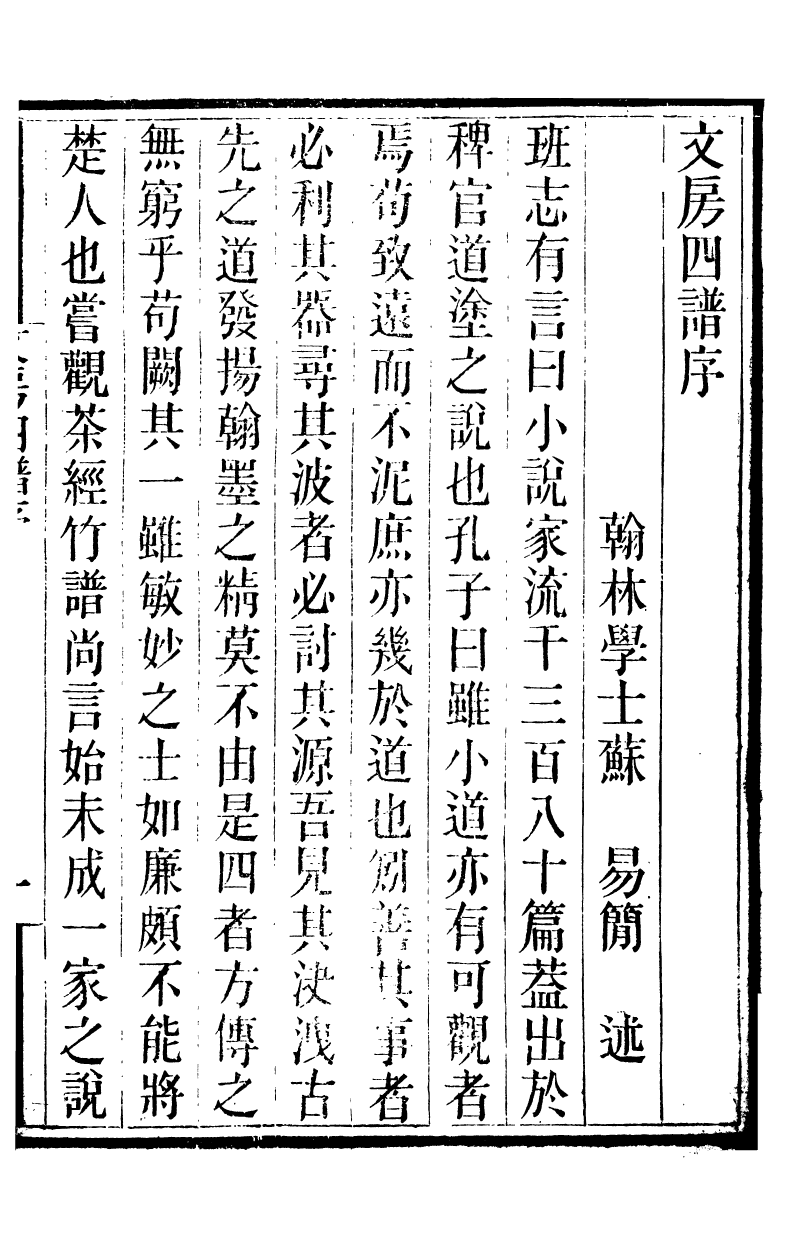 文房四譜序
翰林學士蘇 易簡 述
班志有言曰小說家流千三百八十篇蓋出於
稗官道塗之說也孔子曰雖小道亦有可觀者
焉苟致遠而不泥庶亦幾於道也矧善其事者
必利其器尋其波者必討其源吾見其決洩古
先之道發揚翰墨之精莫不由是四者方傳之
無窮乎苟闕其一雖敏妙之士如廉頗不能將
楚人也嘗觀茶經竹譜尚言始末成一家之說
四譜序
一